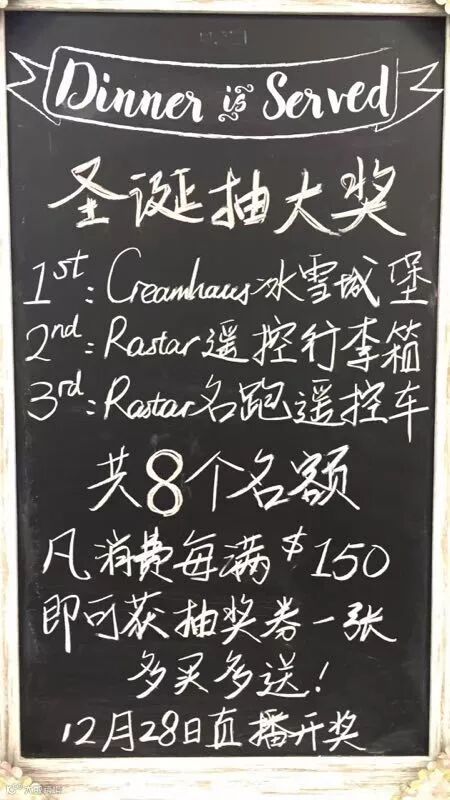 Dinner is Served
圣诞抽大奖
1st: Creamhaus冰雪城堡
2nd: Rastar遥控行李箱
3rd: Rastar名跑遥控车
共8个名额
凡消费每满$150
即可获抽奖券一张
多买多送!
12月28日直播开奖